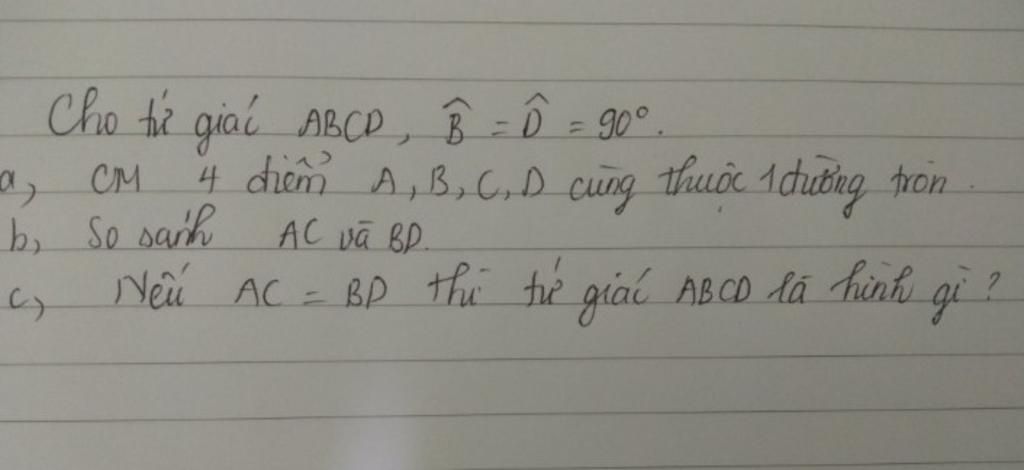 Cho tứ giác ABCD, B̂ = D̂ = 90°.
a, CM 4 điểm A, B, C, D cùng thuộc 1 đường tròn.
b, So sánh AC và BD.
c, Nếu AC = BD thì tứ giác ABCD là hình gì?